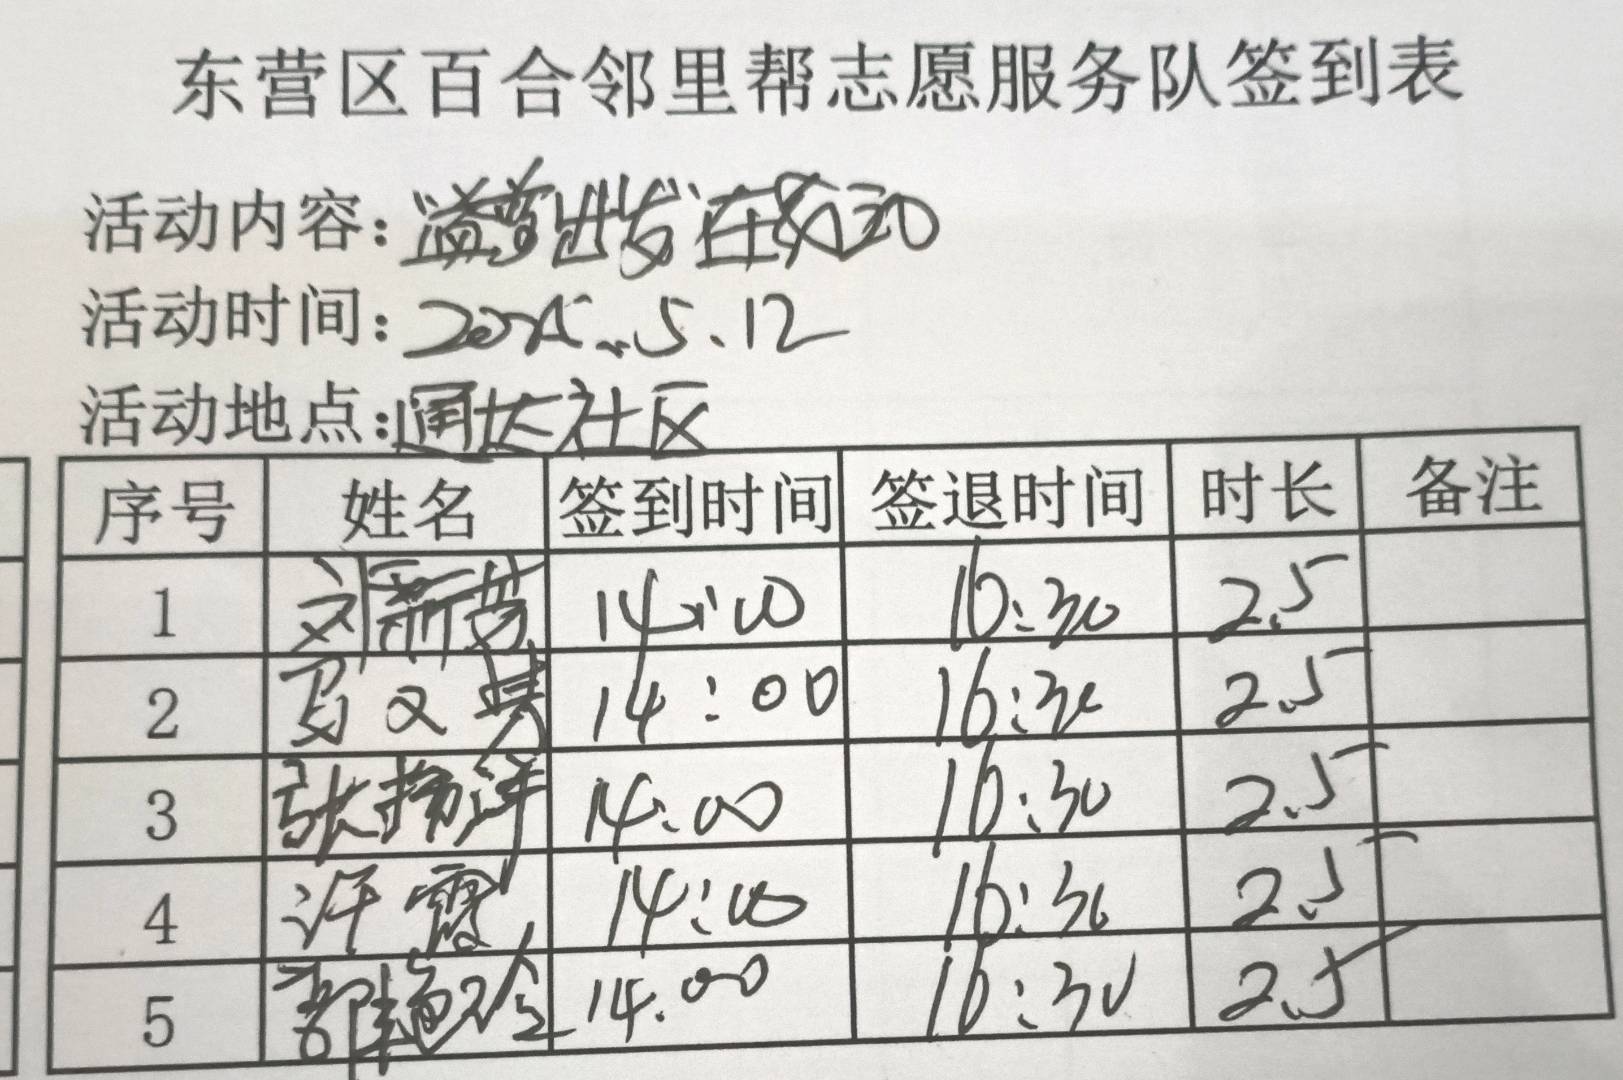 东营区百合邻里帮志愿服务队签到表
活动内容：益营出发在行动
活动时间：2025.5.12
活动地点：通达社区
序号 姓名 签到时间 签退时间 时长 备注
1 刘 14:00 16:30 2.5
2 14:00 16:30 2.5
3 张扬洋 14:00 16:30 2.5
4 许霞 14:00 16:30 2.5
5 14:00 16:30 2.5